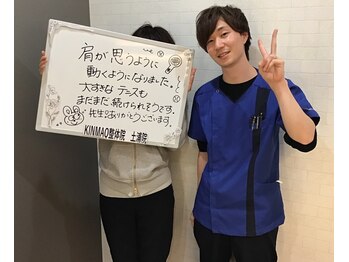 肩が思うように
動くようになりました。
大すきなテニスも
まだまだ続けられそうです。
先生♡ありがとうございます。
KINMAQ整体院 土浦院